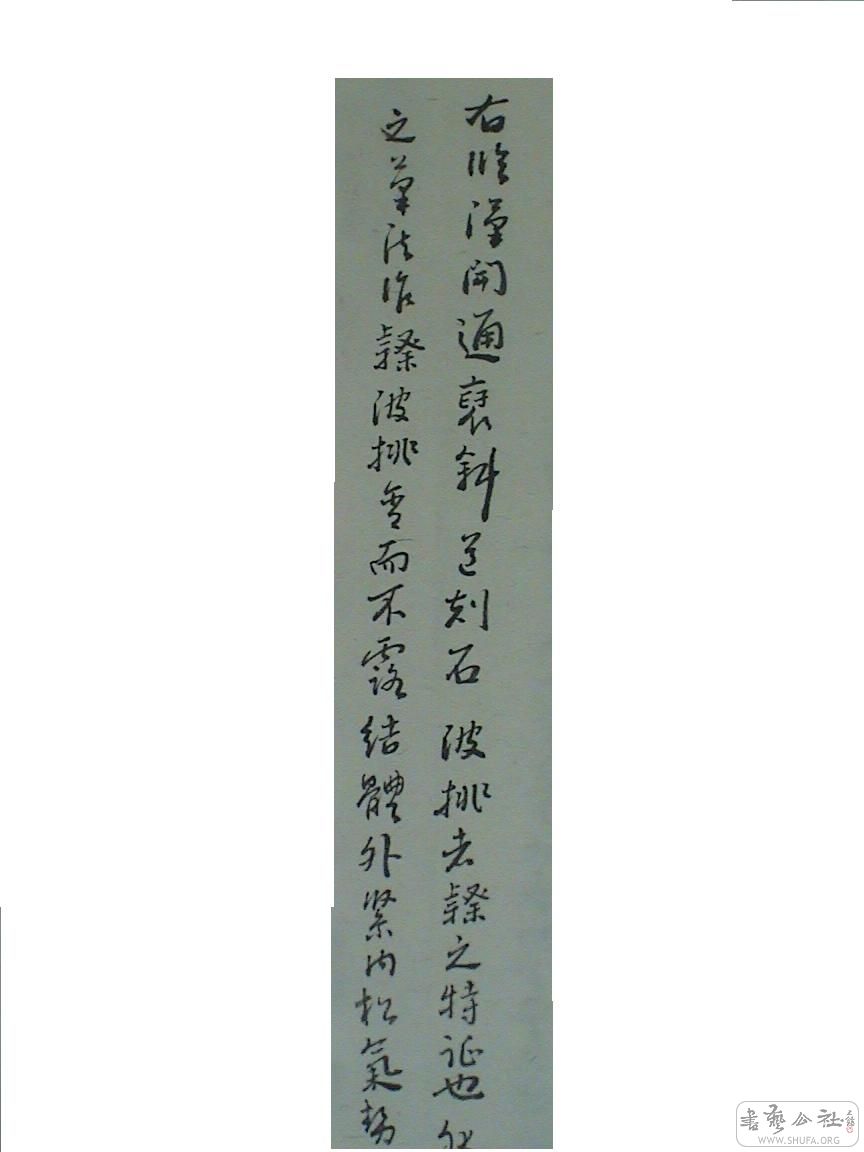 右臨漢開通褒斜道刻石波排者隸之特证也
之筆法作隸波排含而不露結體外紧内松氣勢
書藝公社
WWW.SHUFA.ORG